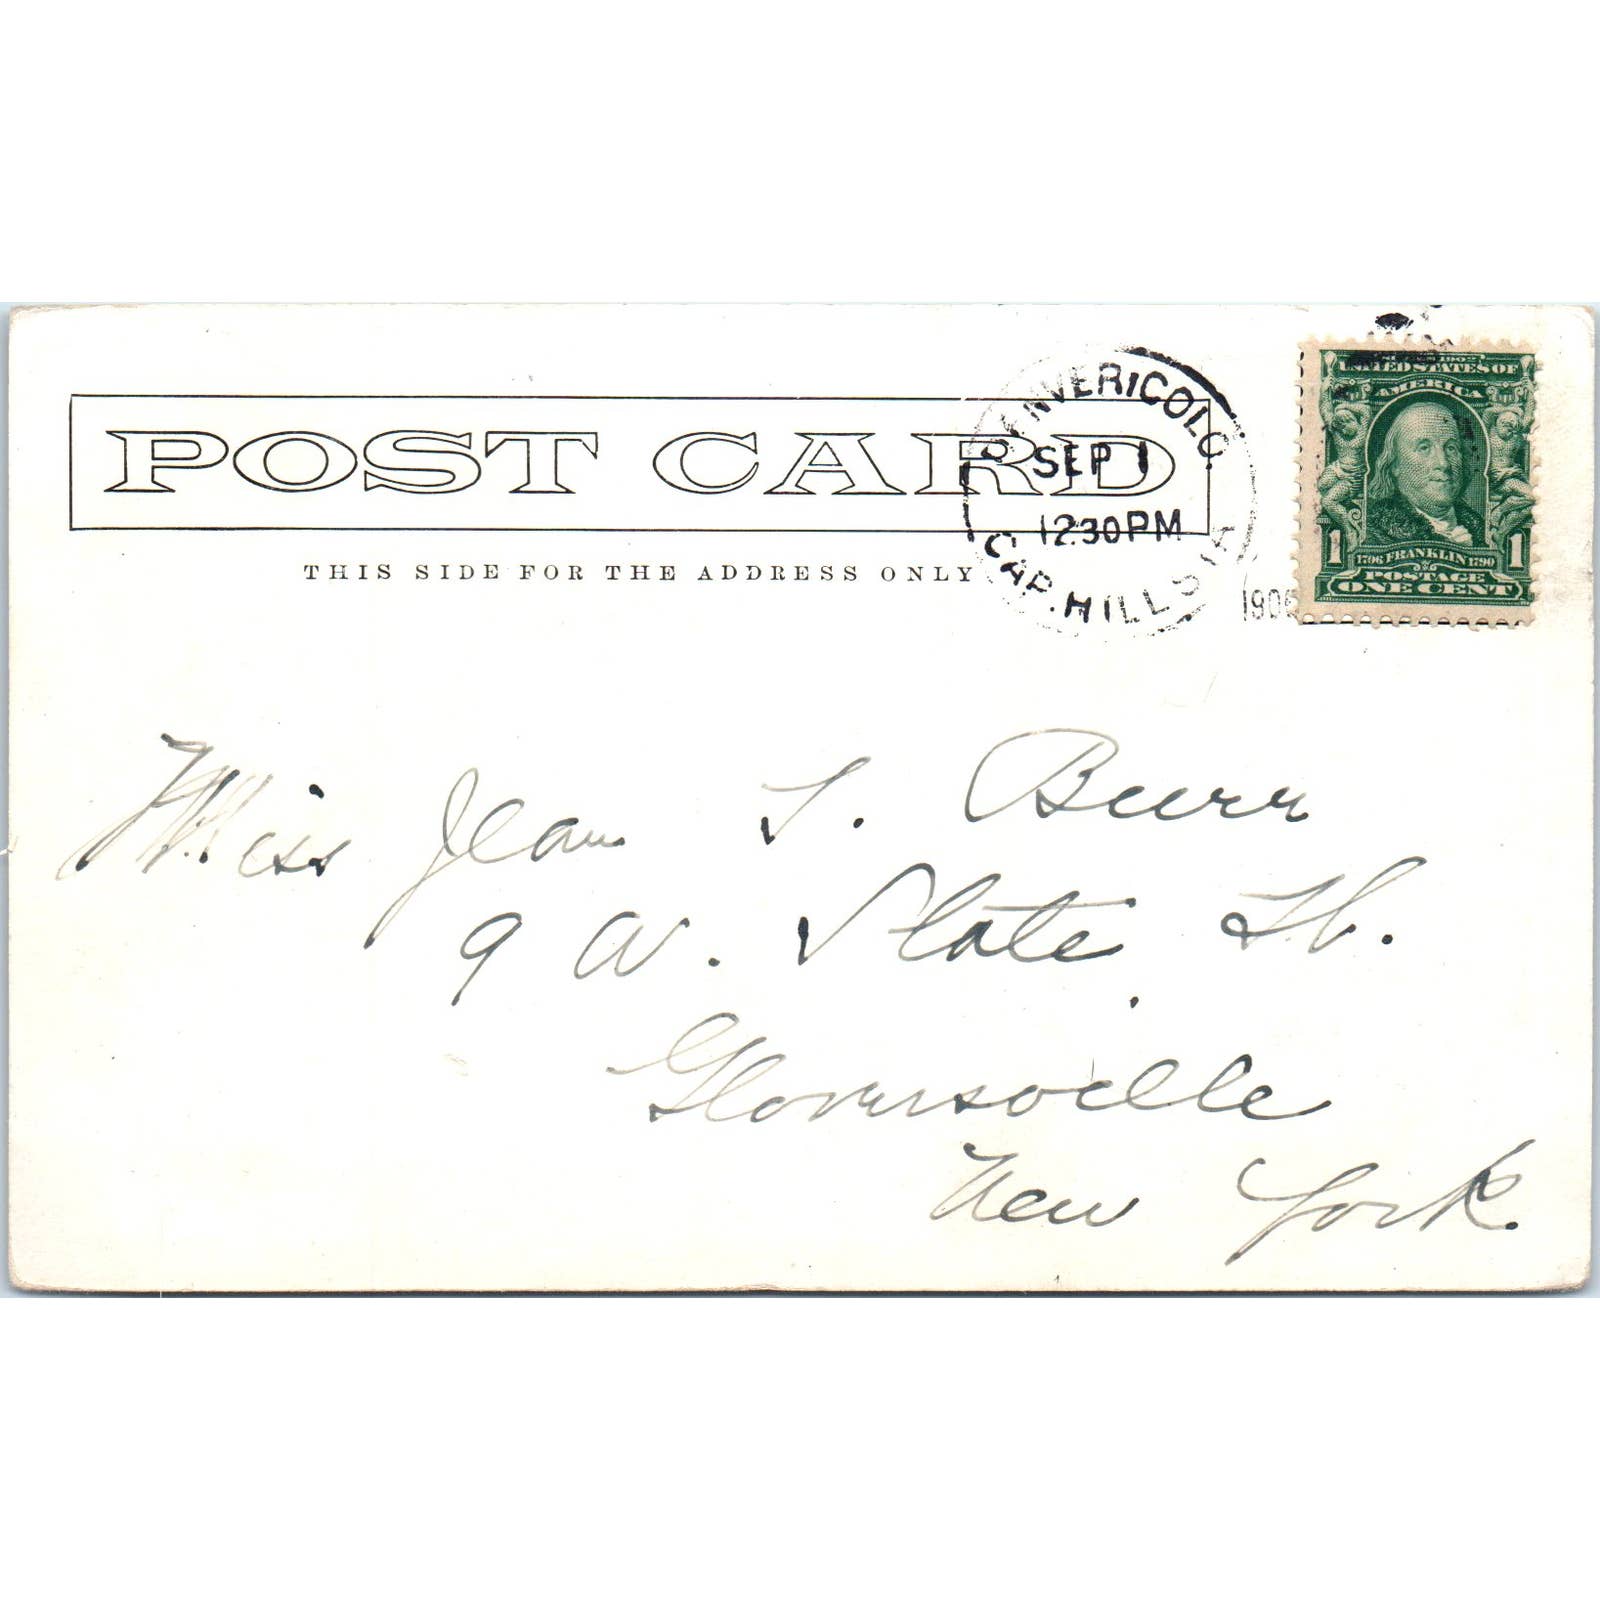 POST CARD
THIS SIDE FOR THE ADDRESS ONLY
DENVER COLO.
SEP 1
12 30 PM
CAP. HILL STA
1906
SERIES 1902
UNITED STATES OF
AMERICA
1 1
1706 FRANKLIN 1790
POSTAGE
ONE CENT
Miss Jean S. Burr
9 W. State St.
Gloversville
New York.